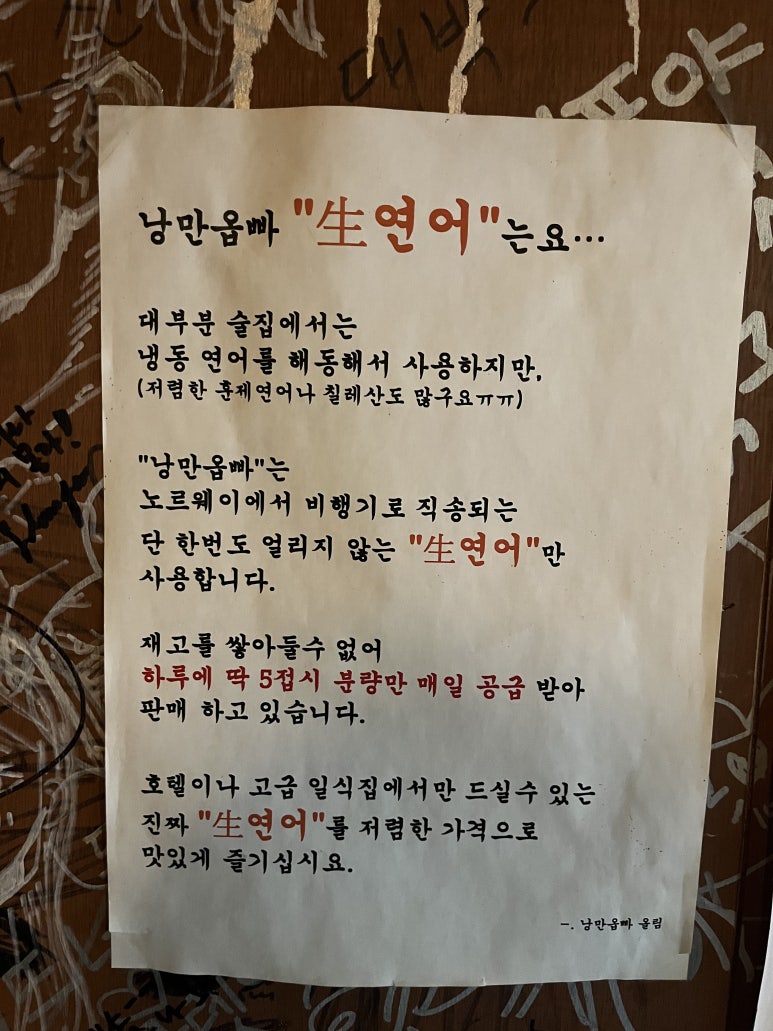 대박
낭만옵빠 "生연어"는요…
대부분 술집에서는
냉동 연어를 해동해서 사용하지만,
(저렴한 훈제연어나 칠레산도 많구요ㅠㅠ)
"낭만옵빠"는
노르웨이에서 비행기로 직송되는
단 한번도 얼리지 않는 "生연어"만
사용합니다.
재고를 쌓아둘수 없어
하루에 딱 5접시 분량만 매일 공급 받아
판매 하고 있습니다.
호텔이나 고급 일식집에서만 드실수 있는
진짜 "生연어"를 저렴한 가격으로
맛있게 즐기십시요.
-. 낭만옵빠 올림